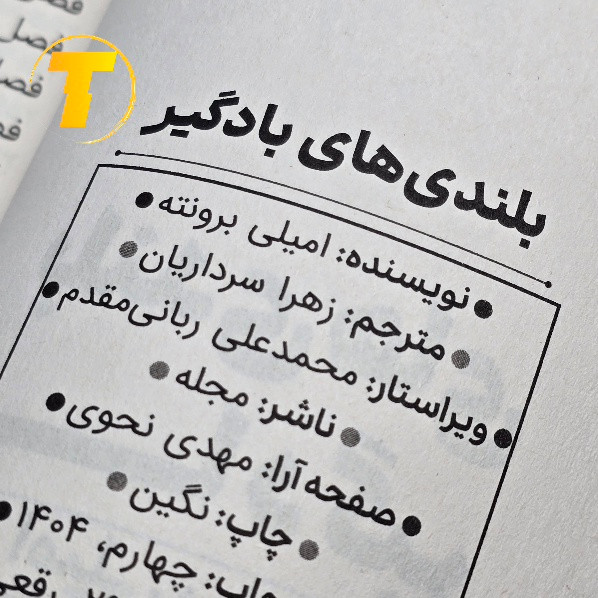 فصل
فصل
فصل
T
بلندی‌های بادگیر
نویسنده: امیلی برونته
مترجم: زهرا سرداریان
ویراستار: محمدعلی ربانی‌مقدم
ناشر: مجله
صفحه‌آرا: مهدی نحوی
چاپ: نگین
چهارم، ۱۴۰۴
رقعی